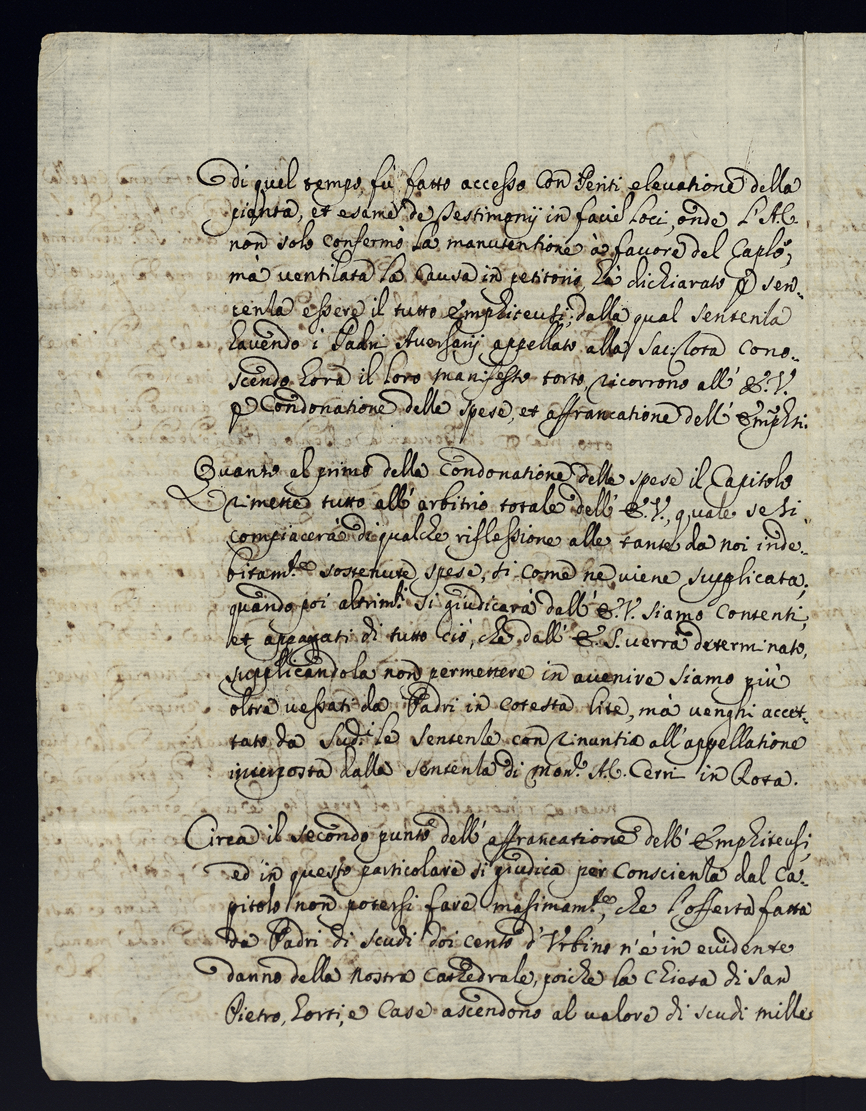 di quel tempo, fù fatto accesso con Periti elevatione della
pianta, et esame de Testimonij in facie loci, onde l'A.C.
non solo confermò la manutentione à favore del Caplo,
mà ventilata la Causa in petitorio hà dichiarato p sen-
tenza essere il tutto emphiteusi; dalla qual sentenza
havendo i Padri Aversarij appellato alla Sac: Rota cono-
scendo hora il loro manifesto torto, ricorrono all' E.V.
p Condonatione delle spese, et affrancatione dell' Emphiti:
Quanto al primo della Condonatione delle spese il Capitolo
rimette tutto all' arbitrio totale dell' E.V., quale se si
compiacerà di qualche riflessione alle tante da noi inde-
bitam.te sostenute spese, si come ne viene supplicata;
quando poi altrim.ti si giudicarà dall' E.V. siamo contenti,
et appagati di tutto ciò, che dall' E.S. verrà determinato,
supplicandola non permettere in avenire siamo più
oltre vessati da Padri in cotesta lite, mà venghi accet-
tato da Sud.ti le sentenze con rinuntia all' appellatione
interposta dalla sentenza di Mons. A.C. Cerri in Rota.
Circa il secondo punto dell' affrancatione dell' Emphiteusi,
ed in questo particolare si giudica per conscienza dal Ca-
pitolo non potersi fare masimam.te, che l'offerta fatta
da Padri di scudi doi cento d'Urbino n'è in evidente
danno della nostra Cathedrale, poiche la Chiesa di San
Pietro, horti, e Case ascendono al valore di scudi mille